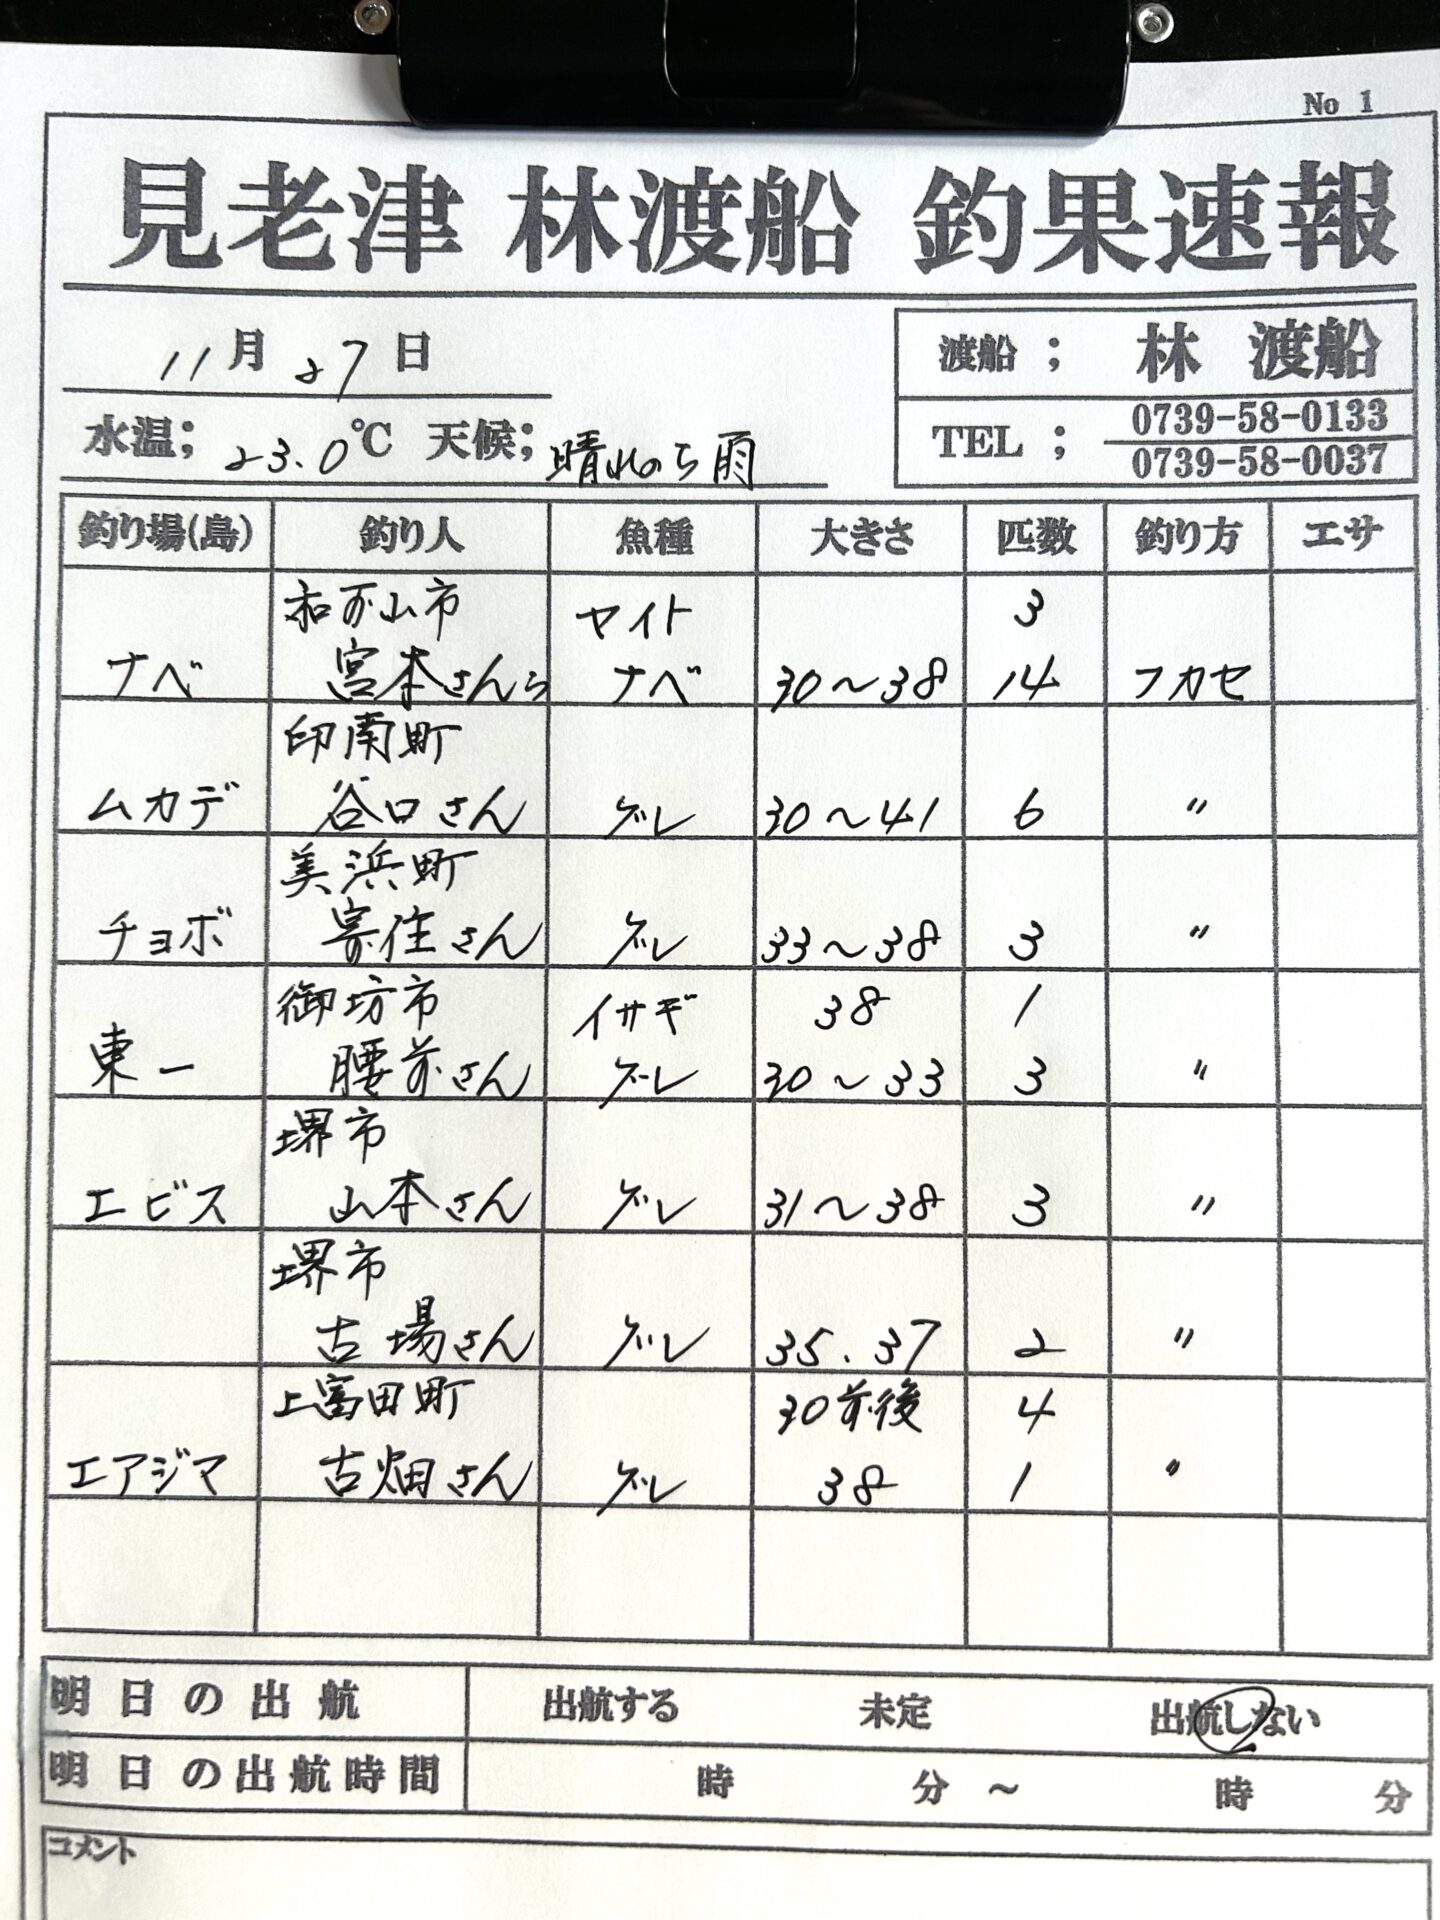 No 1
見老津 林渡船 釣果速報
11月27日
渡船 ; 林 渡船
水温; 23.0℃ 天候; 晴れのち雨
TEL ; 0739-58-0133
0739-58-0037
釣り場(島) 釣り人 魚種 大きさ 匹数 釣り方 エサ
和歌山市 サイト 3
ナベ 宮本さんら ナベ 30〜38 14 フカセ
印南町
ムカデ 谷口さん グレ 30〜41 6 〃
美浜町
チョボ 寄住さん グレ 33〜38 3 〃
御坊市 イサギ 38 1
東一 腰前さん グレ 30〜33 3 〃
堺市
エビス 山本さん グレ 31〜38 3 〃
堺市
古場さん グレ 35.37 2 〃
上富田町 30前後 4
エアジマ 古畑さん グレ 38 1 〃
明日の出航 出航する 未定 出航しない
明日の出航時間 時 分 〜 時 分
コメント